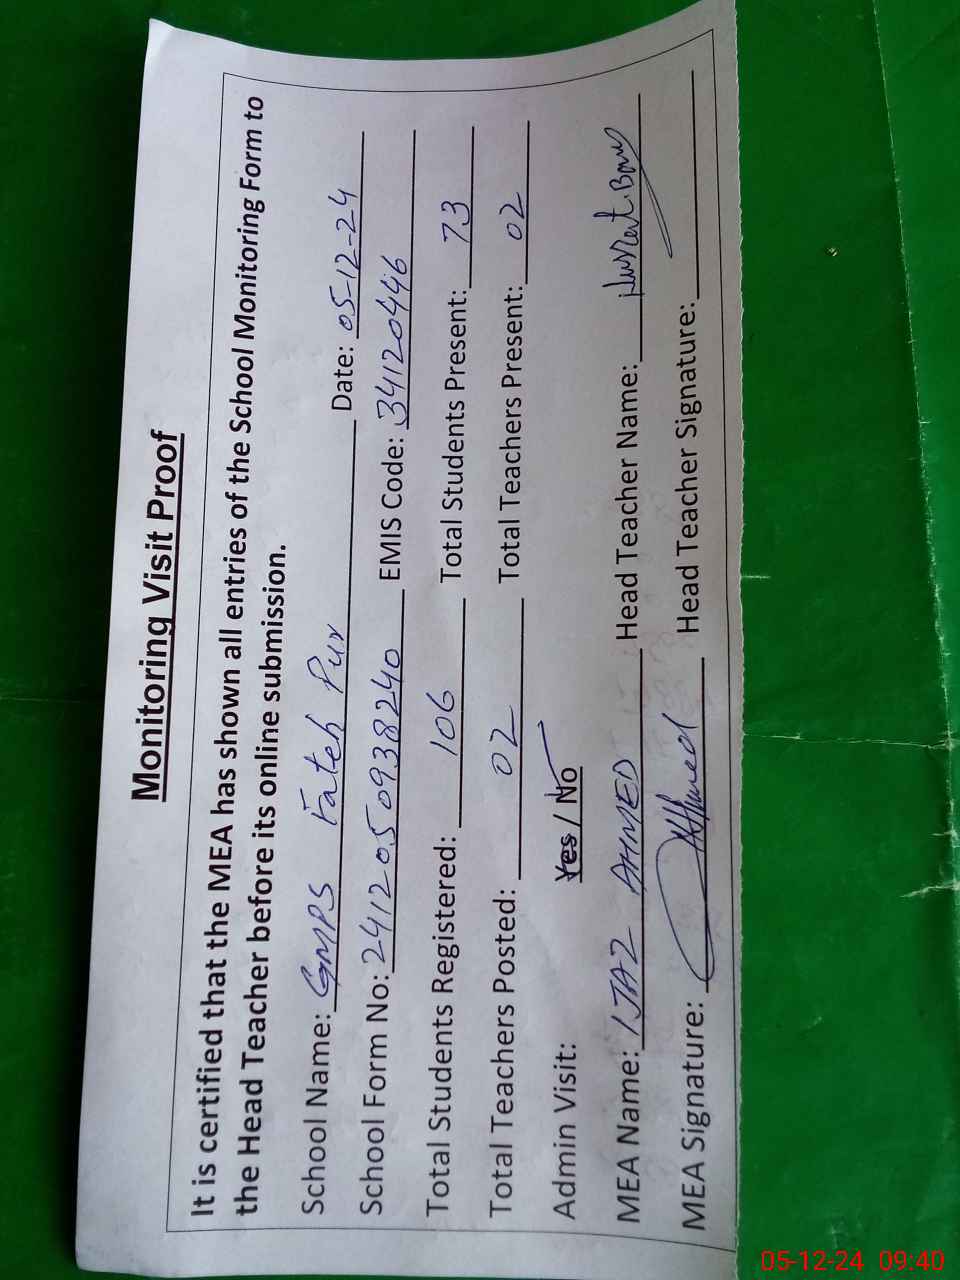 Monitoring Visit Proof
It is certified that the MEA has shown all entries of the School Monitoring Form to
the Head Teacher before its online submission.
School Name: GMPS Fateh Pur Date: 05-12-24
School Form No: 2412050938240 EMIS Code: 34120446
Total Students Registered: 106 Total Students Present: 73
Total Teachers Posted: 02 Total Teachers Present: 02
Admin Visit: Yes / No
MEA Name: IJAZ AHMED Head Teacher Name: Nusrat Bano
MEA Signature: Head Teacher Signature:
05-12-24 09:40